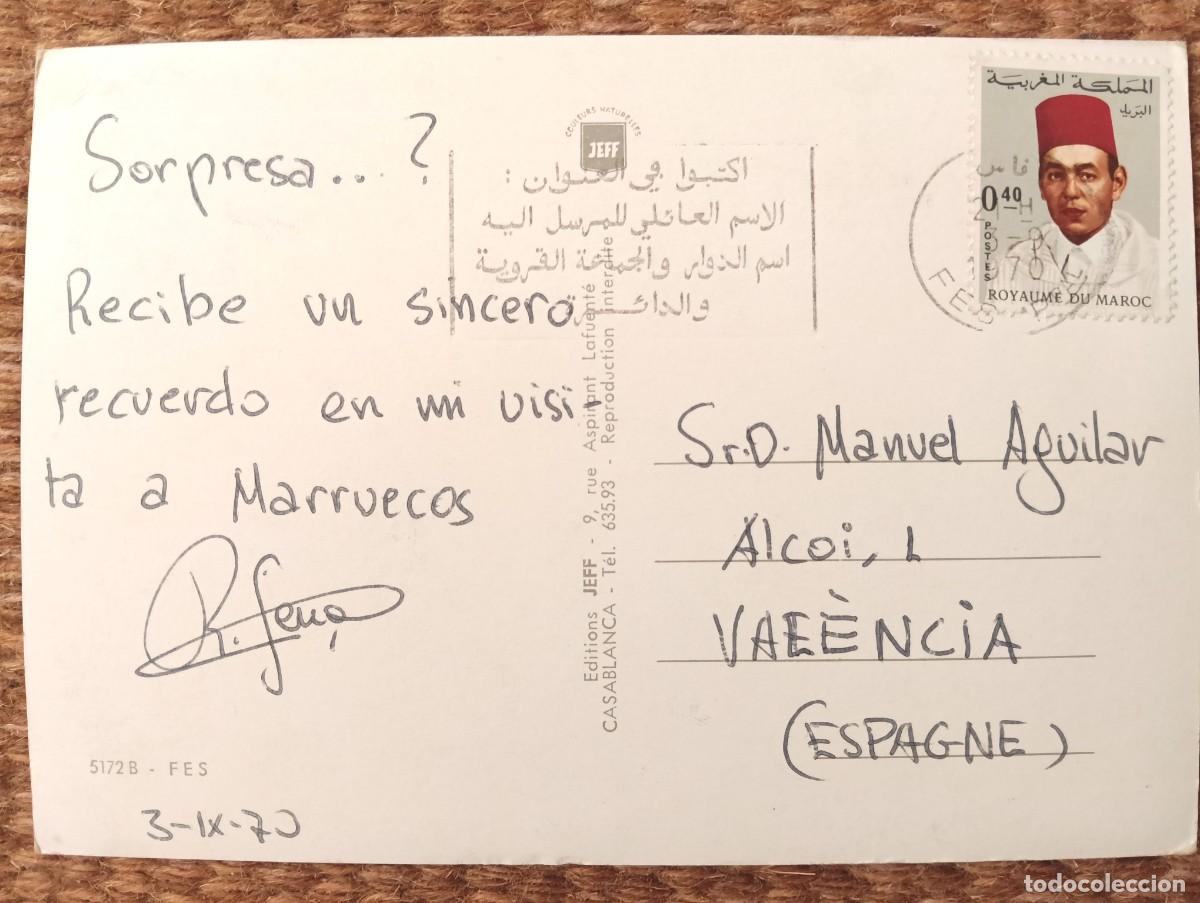 Sorpresa...?
Recibe un sincero
recuerdo en mi visi-
ta a Marruecos
5172 B - FES
3-IX-70
COULEURS NATURELLES
JEFF
اكتبوا في العنوان :
الاسم العائلي للمرسل اليه
اسم الدوار والجماعة القروية
والدائرة
Editions JEFF - 9, rue Aspirant Lafuente
CASABLANCA - Tél. 635.93 - Reproduction interdite
المملكة المغربية
البريد
0,40
POSTES
ROYAUME DU MAROC
فاس
21-H
3-9
70
FES
Sr.D. Manuel Aguilar
Alcoi, 1
VAĿÈNCIA
(ESPAGNE)
todocoleccion